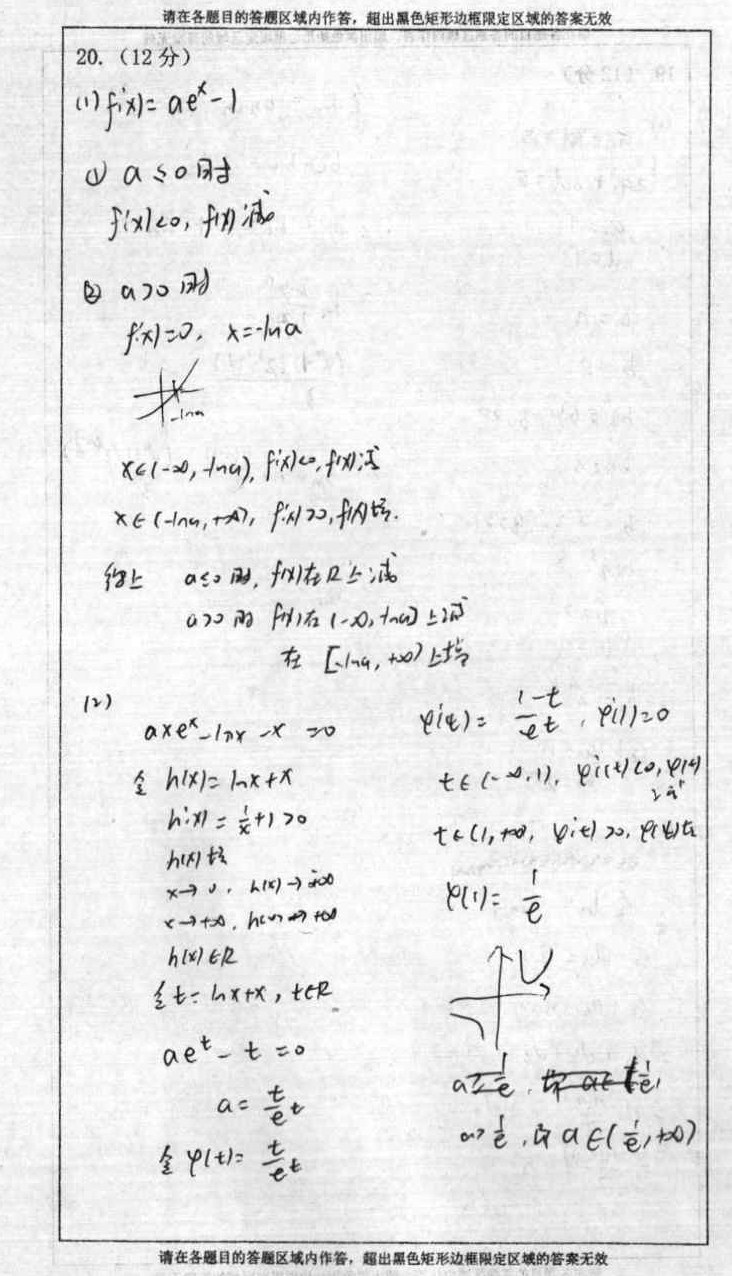 请在各题目的答题区域内作答，超出黑色矩形边框限定区域的答案无效
20.（12分）
(1) f'(x)= ae^x - 1
① a ≤ 0 时
f'(x)<0, f(x)减
② a>0 时
f'(x)=0, x=-lna
-lna
x∈(-∞, -lna), f'(x)<0, f(x)减
x∈(-lna, +∞), f'(x)>0, f(x)增.
综上 a≤0 时, f(x)在R上减
a>0 时 f(x)在(-∞, -lna]上减
在 [-lna, +∞)上增
(2)
axe^x - lnx - x = 0
令 h(x)= lnx+x
h'(x)= 1/x +1 >0
h(x)增
x→0, h(x)→-∞
x→+∞, h(x)→+∞
h(x)∈R
令t= lnx+x, t∈R
ae^t - t = 0
a= t/e^t
令 φ(t)= t/e^t
φ'(t)= (1-t)/e^t, φ'(1)=0
t∈(-∞,1), φ'(t)<0, φ(t)
减
t∈(1,+∞), φ'(t)>0, φ(t)增
φ(1)= 1/e
a> 1/e, 即 a∈(1/e, +∞)
请在各题目的答题区域内作答，超出黑色矩形边框限定区域的答案无效